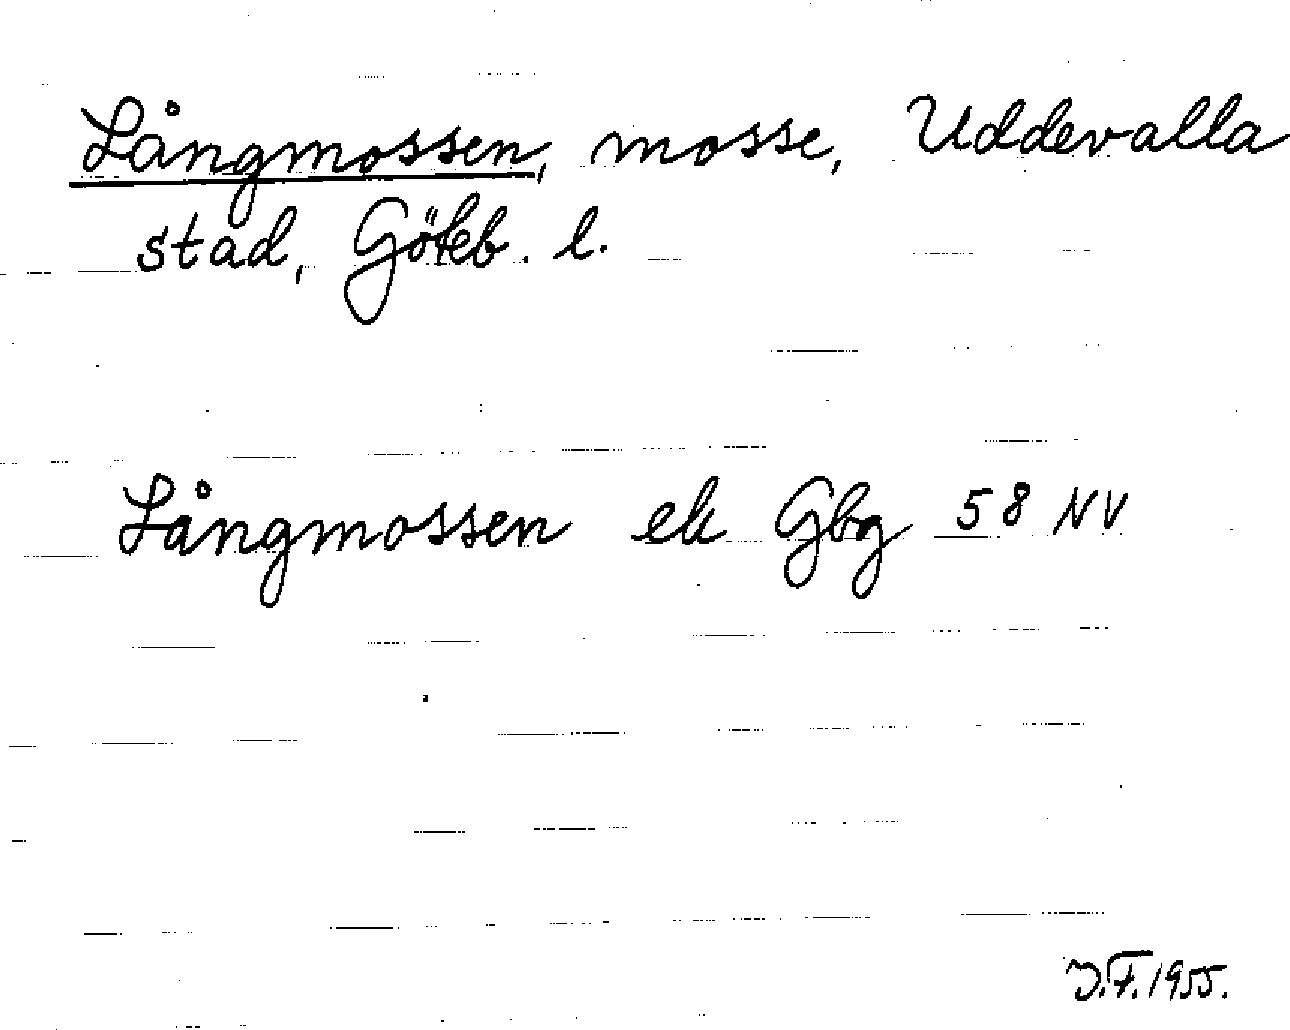 Långmossen, mosse, Uddevalla
stad, Göteb. l.
Långmossen ek Gbg 58 NV
J.F. 1955.